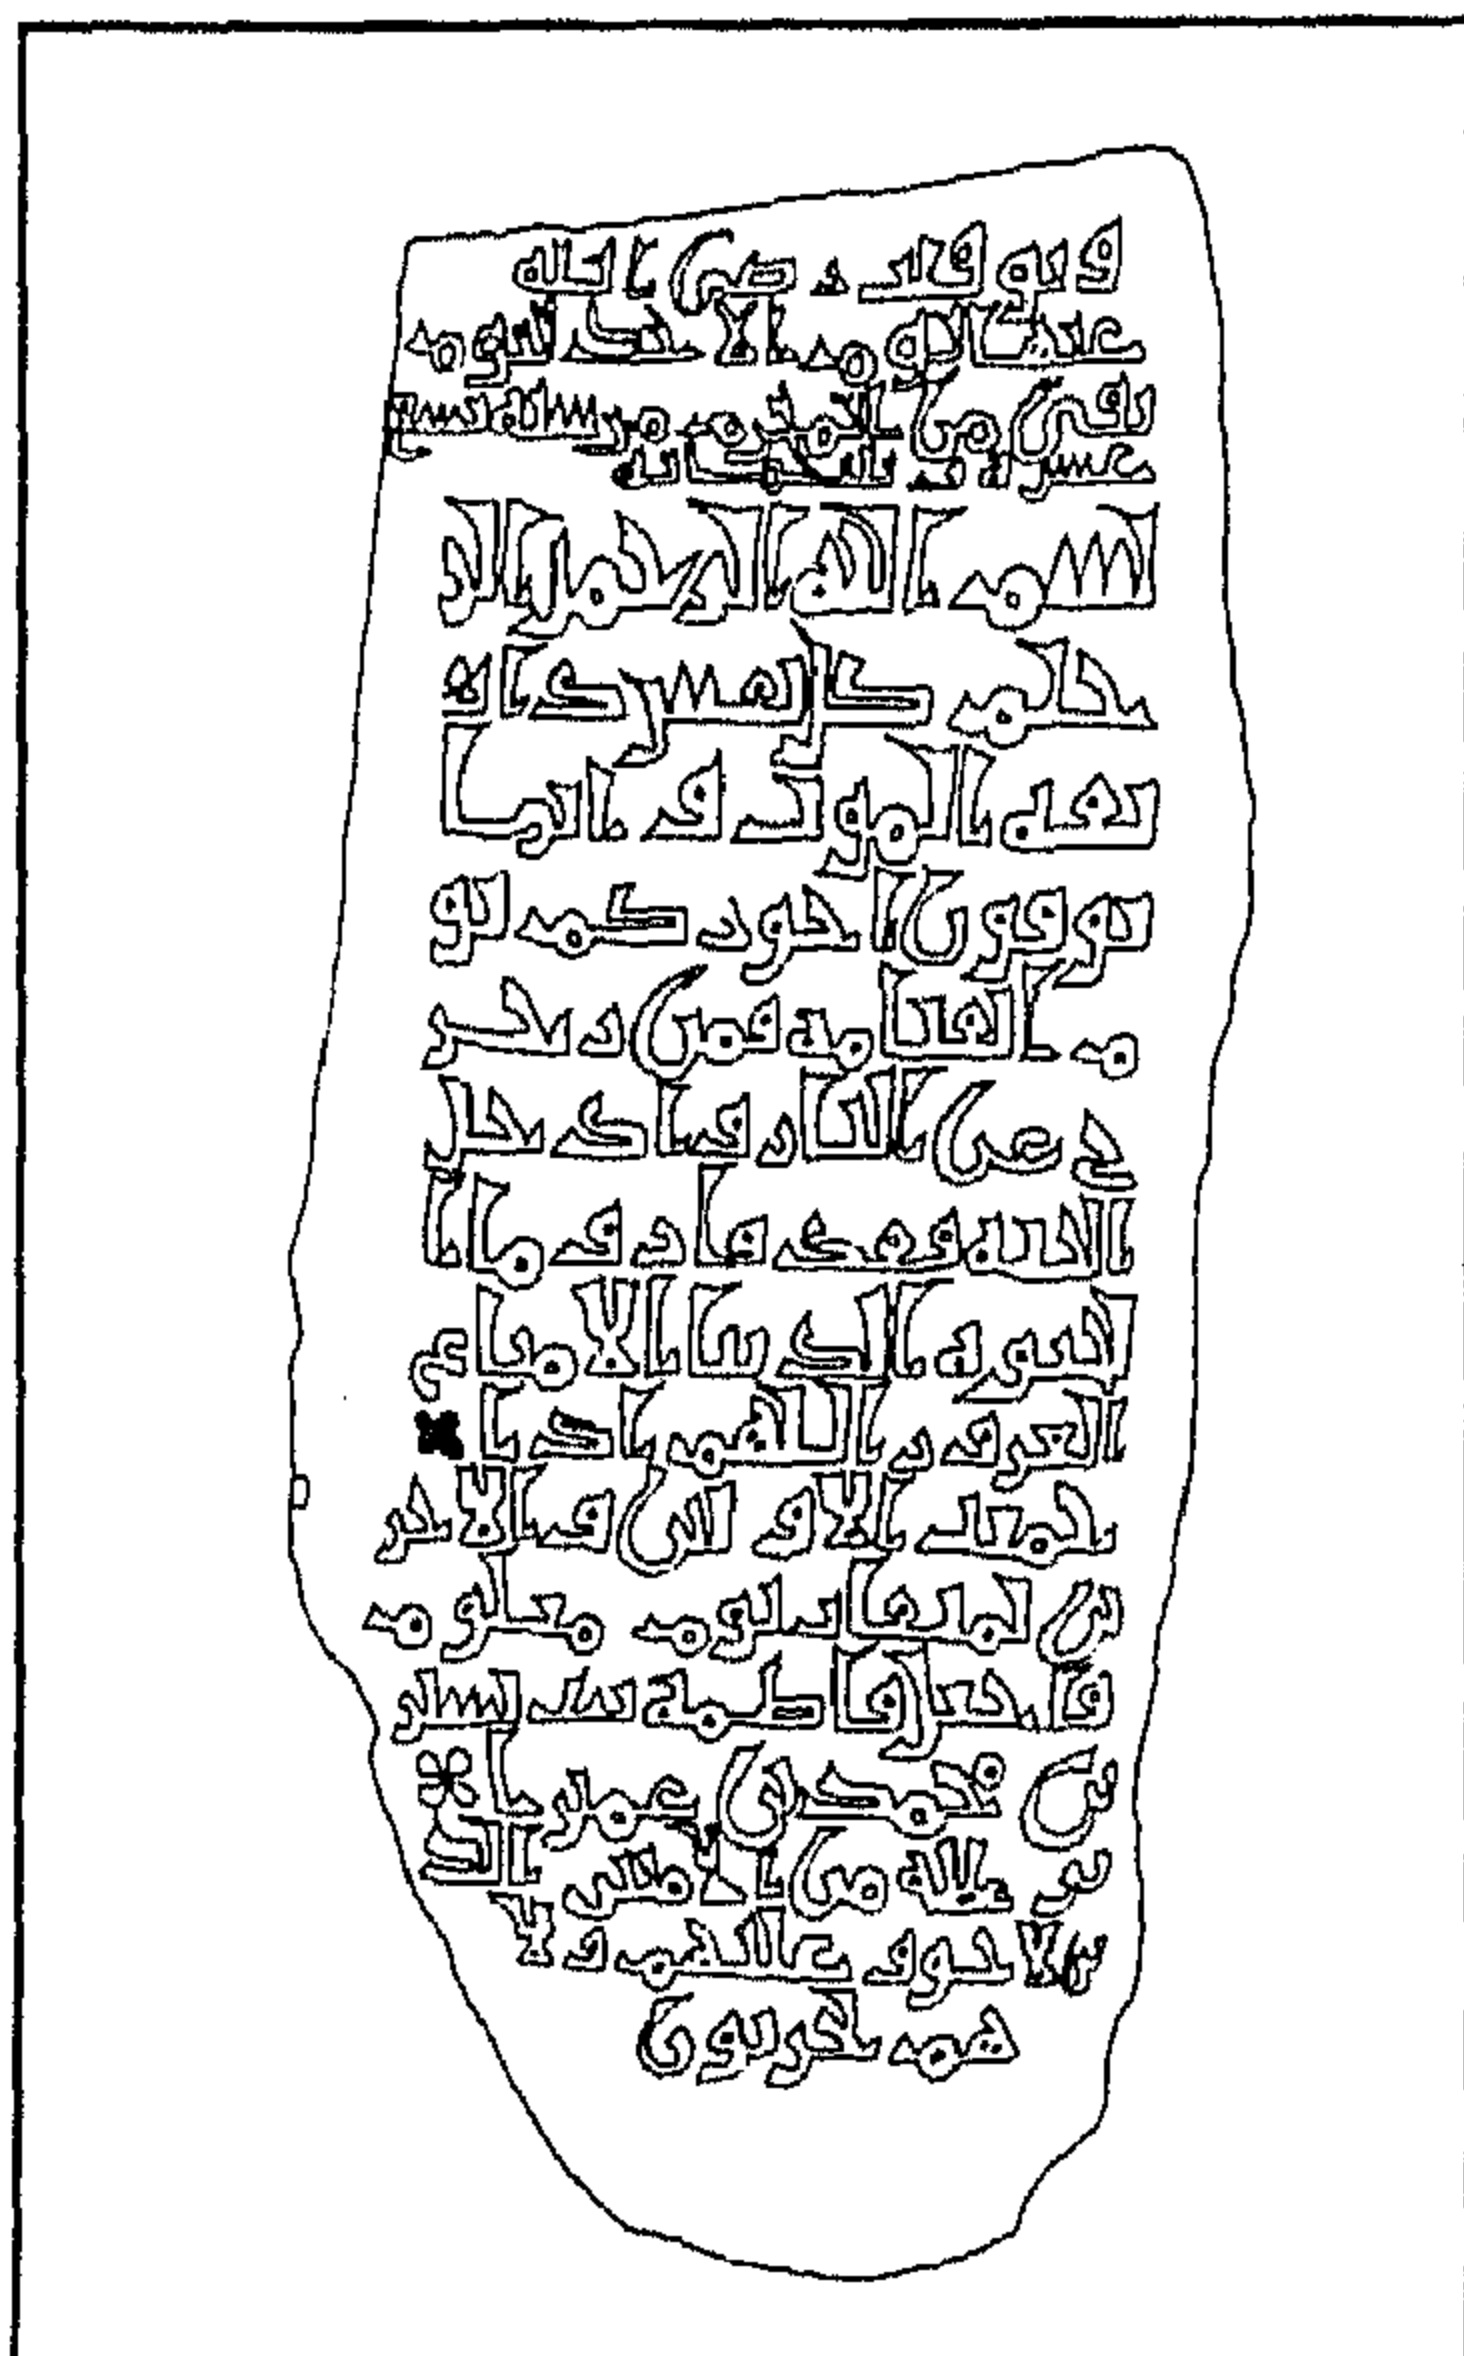 وتوفيت رضي الله
عنها يوم الاحد ليوم
بقي من المحرم سنة
بسم الله الرحمن الر
حيم كل نفس ذائ
قة الموت وانما
توفون اجوركم يو
م القيامة فمن زحز
ح عن النار وادخل
الجنة فقد فاز وما ا
لحيوة الدنيا الا متاع
الغرور اللهم اذا
جمعت الاولين والاخر
ين لميقات يوم معلوم
فاجعل فاطمة بنت
بن محمد بن عمر
من الامنين الذ
ين لا خوف عليهم ولا
هم يحزنون